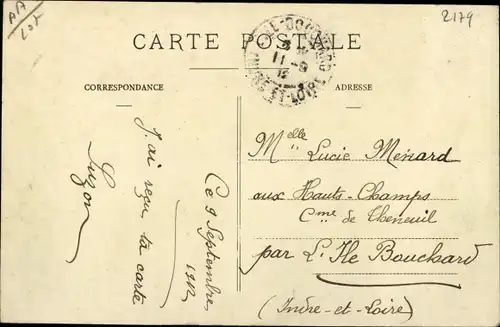 AA
Lot
2179
CARTE POSTALE
CORRESPONDANCE
ADRESSE
INDRE-ET-LOIRE
11 -9
12
J'ai reçu ta carte
Suzon
Ce 9 Septembre
1912
Melle Lucie Ménard
aux Hauts-Champs
Cme de Theneuil
par L'Ile Bouchard
(Indre-et-Loire)